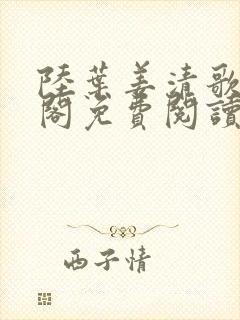 陸葉姜清歌
閣免費閱讀
西子情